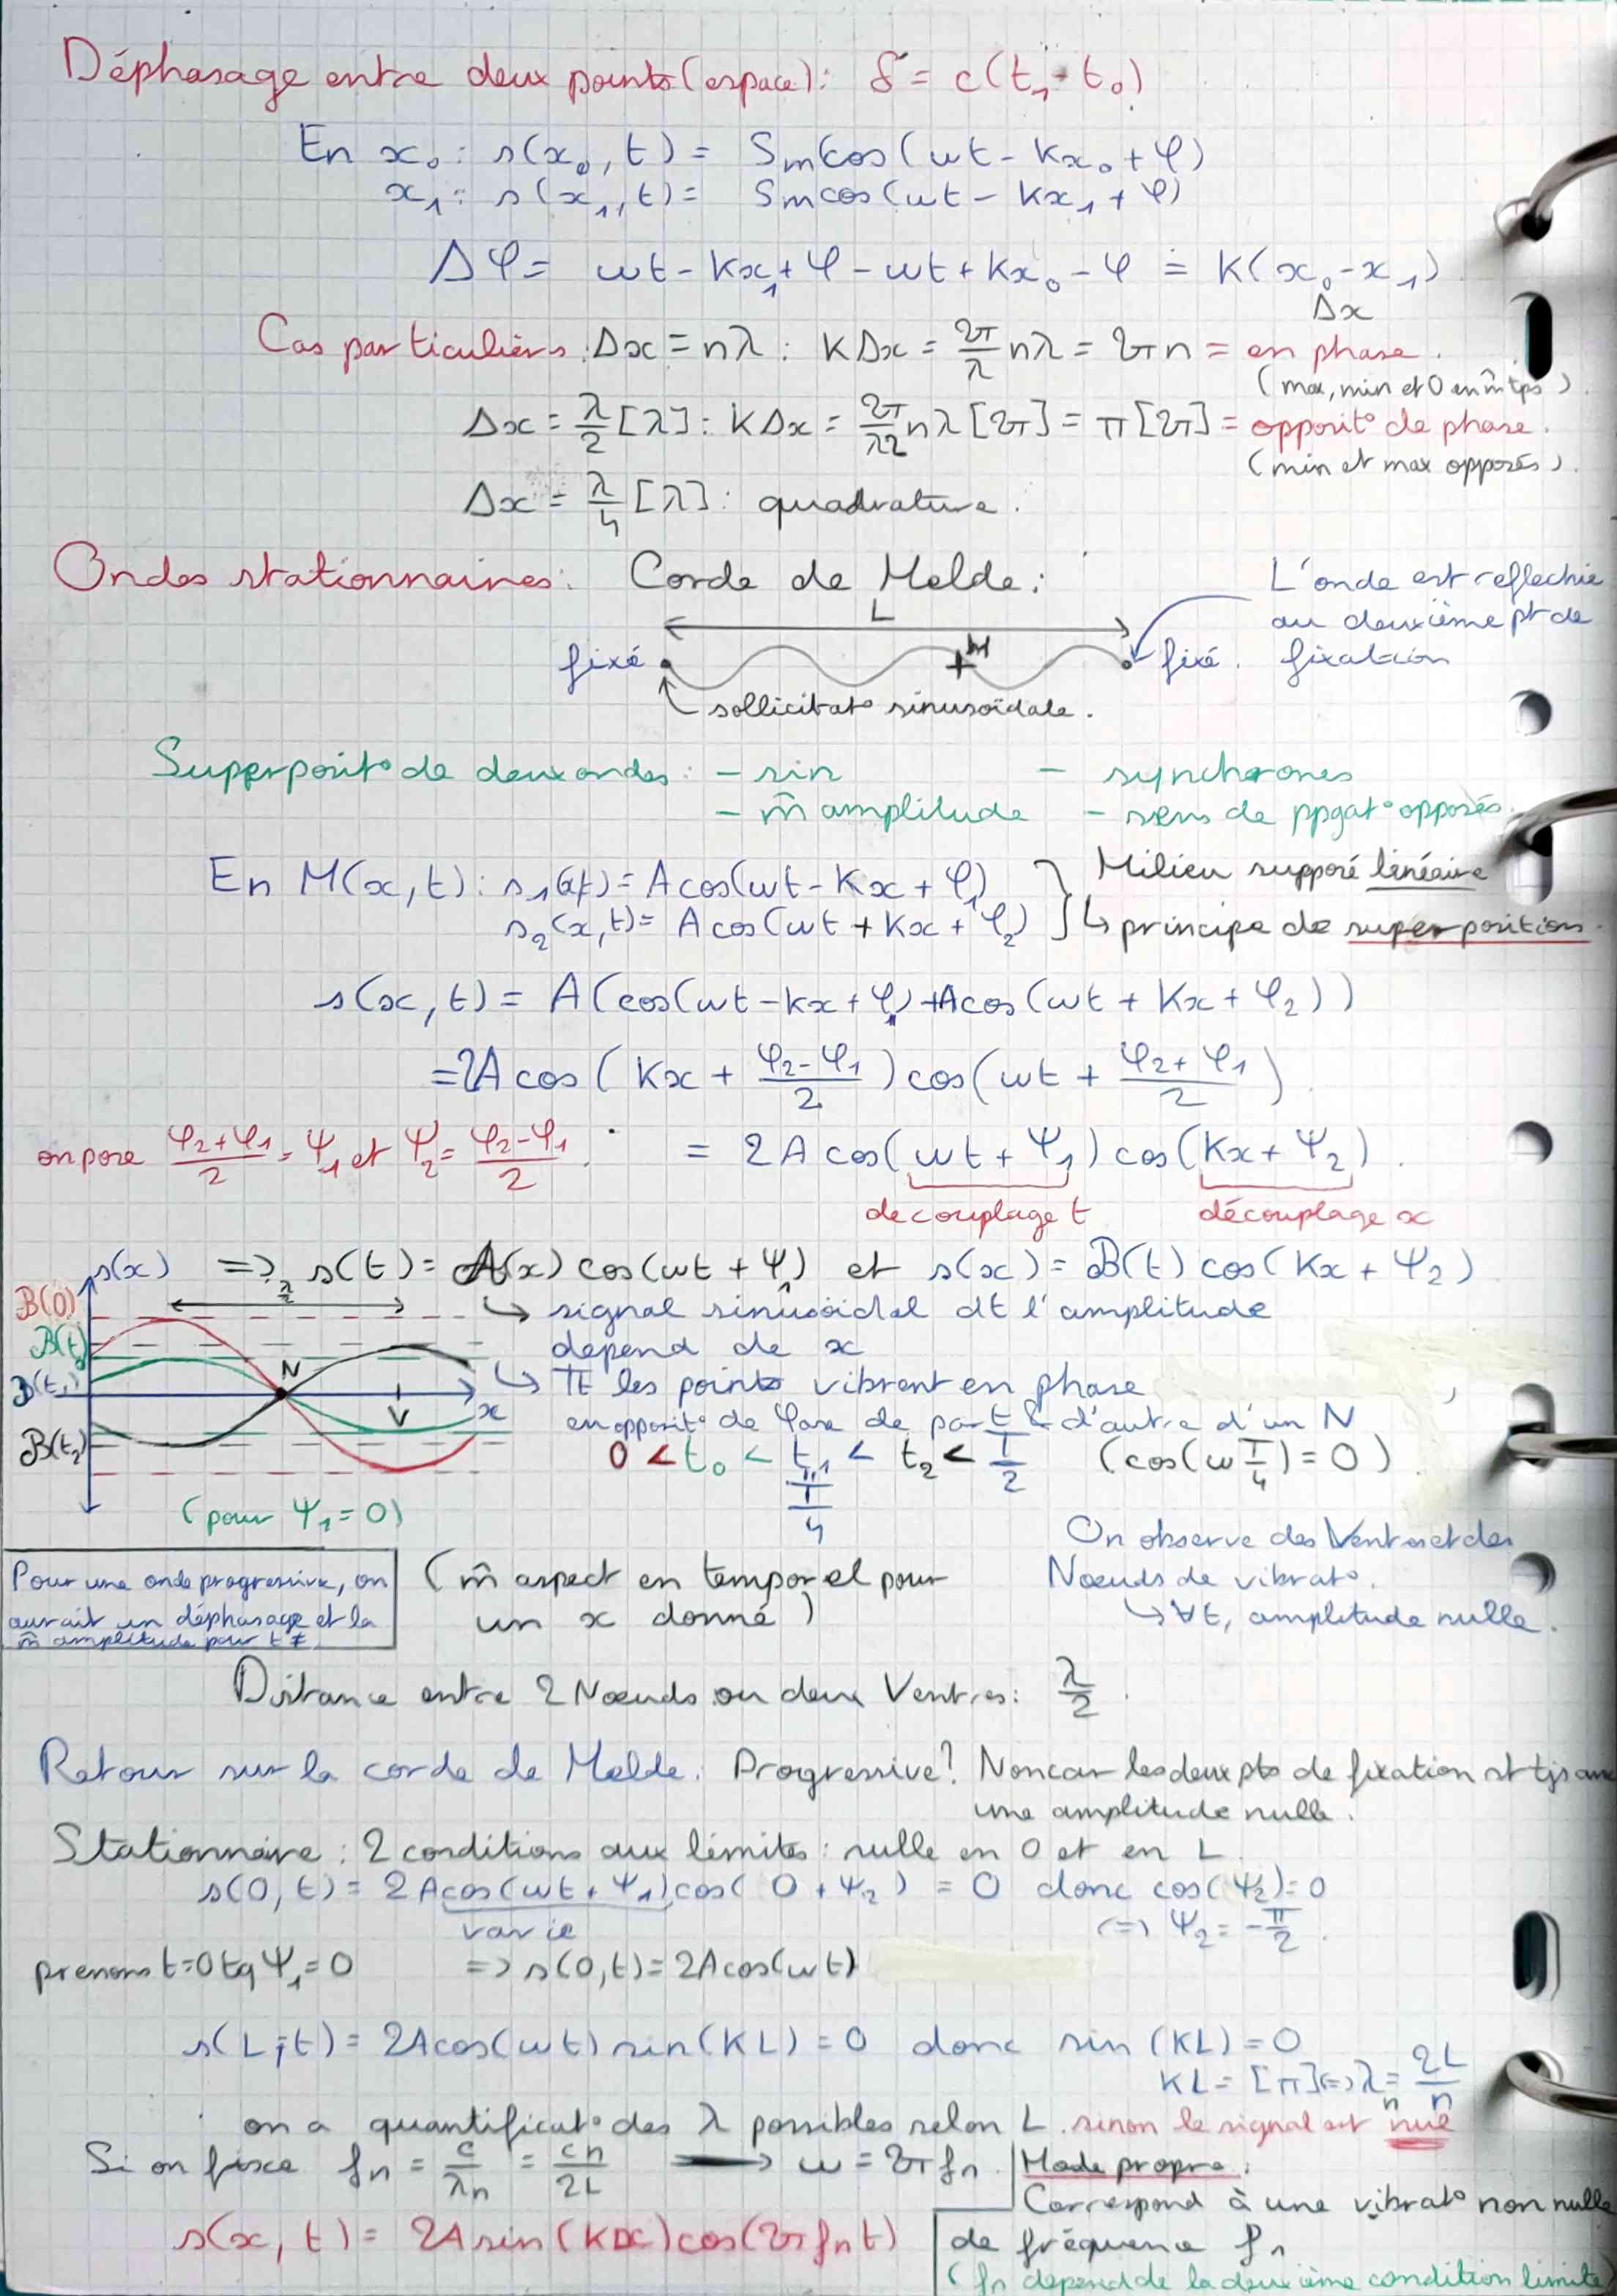 Déphasage entre deux points (espace) : δ = c(t₁ - t₀)
En x₀ : s(x₀, t) = Sm cos(ωt - Kx₀ + φ)
x₁ : s(x₁, t) = Sm cos(ωt - Kx₁ + φ)
Δφ = ωt - Kx₁ + φ - ωt + Kx₀ - φ = K(x₀ - x₁)
Δx
Cas particuliers : Δx = nλ : KΔx = 2π/λ nλ = 2πn = en phase.
(max, min et 0 en m̂ tps)
Δx = λ/2 [λ] : KΔx = 2π/λ2 nλ [2π] = π[2π] = opposit° de phase.
(min et max opposés).
Δx = λ/4 [λ] : quadrature.
Ondes stationnaires : Corde de Melde :
L
L'onde est reflechie
au deuxième pt de
fixation
fixé
M
fixé.
sollicitat° sinusoïdale.
Superposit° de deux ondes : - sin - synchrones
- m̂ amplitude - sens de ppgat° opposés.
En M(x, t) : s₁(x,t) = A cos(ωt - Kx + φ₁)
s₂(x, t) = A cos(ωt + Kx + φ₂)
Milieu supposé linéaire
↳ principe de superposition.
s(x, t) = A(cos(ωt - kx + φ₁) + A cos(ωt + Kx + φ₂))
= 2A cos(Kx + (φ₂ - φ₁)/2) cos(ωt + (φ₂ + φ₁)/2)
on pose (φ₂ + φ₁)/2 = Ψ₁ et Ψ₂ = (φ₂ - φ₁)/2 : = 2A cos(ωt + Ψ₁) cos(Kx + Ψ₂).
decouplage t découplage x
s(x) => s(t) = A(x) cos(ωt + Ψ₁) et s(x) = B(t) cos(Kx + Ψ₂)
λ/2
B(0)
↳ signal sinusoïdal dt l'amplitude
B(t₀)
depend de x
N
B(t₁)
↳ Tt les points vibrent en phase
V
x
en opposit° de φase de part & d'autre d'un N
B(t₂)
0 < t₀ < t₁ < t₂ < T/2 (cos(ω T/4) = 0)
= T/4
(pour Ψ₁ = 0)
On observe des Ventres et des
Noeuds de vibrat°.
↳ ∀t, amplitude nulle.
Pour une onde progressive, on
aurait un déphasage et la
m̂ amplitude pour t ≠.
(m̂ aspect en temporel pour
un x donné)
Distance entre 2 Noeuds ou deux Ventres : λ/2.
Retour sur la corde de Melde. Progressive? Non car les deux pts de fixation st tjs
une amplitude nulle.
Stationnaire : 2 conditions aux limites : nulle en 0 et en L.
s(0, t) = 2A cos(ωt + Ψ₁) cos(0 + Ψ₂) = 0 donc cos(Ψ₂) = 0
varie
<=> Ψ₂ = -π/2.
prenons t=0 tq Ψ₁ = 0 => s(0, t) = 2A cos(ωt)
s(L, t) = 2A cos(ωt) sin(KL) = 0 donc sin(KL) = 0
KL = [π] <=> λₙ = 2L/n
on a quantificat° des λ possibles selon L. sinon le signal est nul
Si on fixe fₙ = c/λₙ = cn/2L ⟶ ω = 2πfₙ.
Mode propre :
Correspond à une vibrat° non nulle
de fréquence fₙ
(fₙ depend de la deuxième condition limite)
s(x, t) = 2A sin(Kx) cos(2πfₙt)